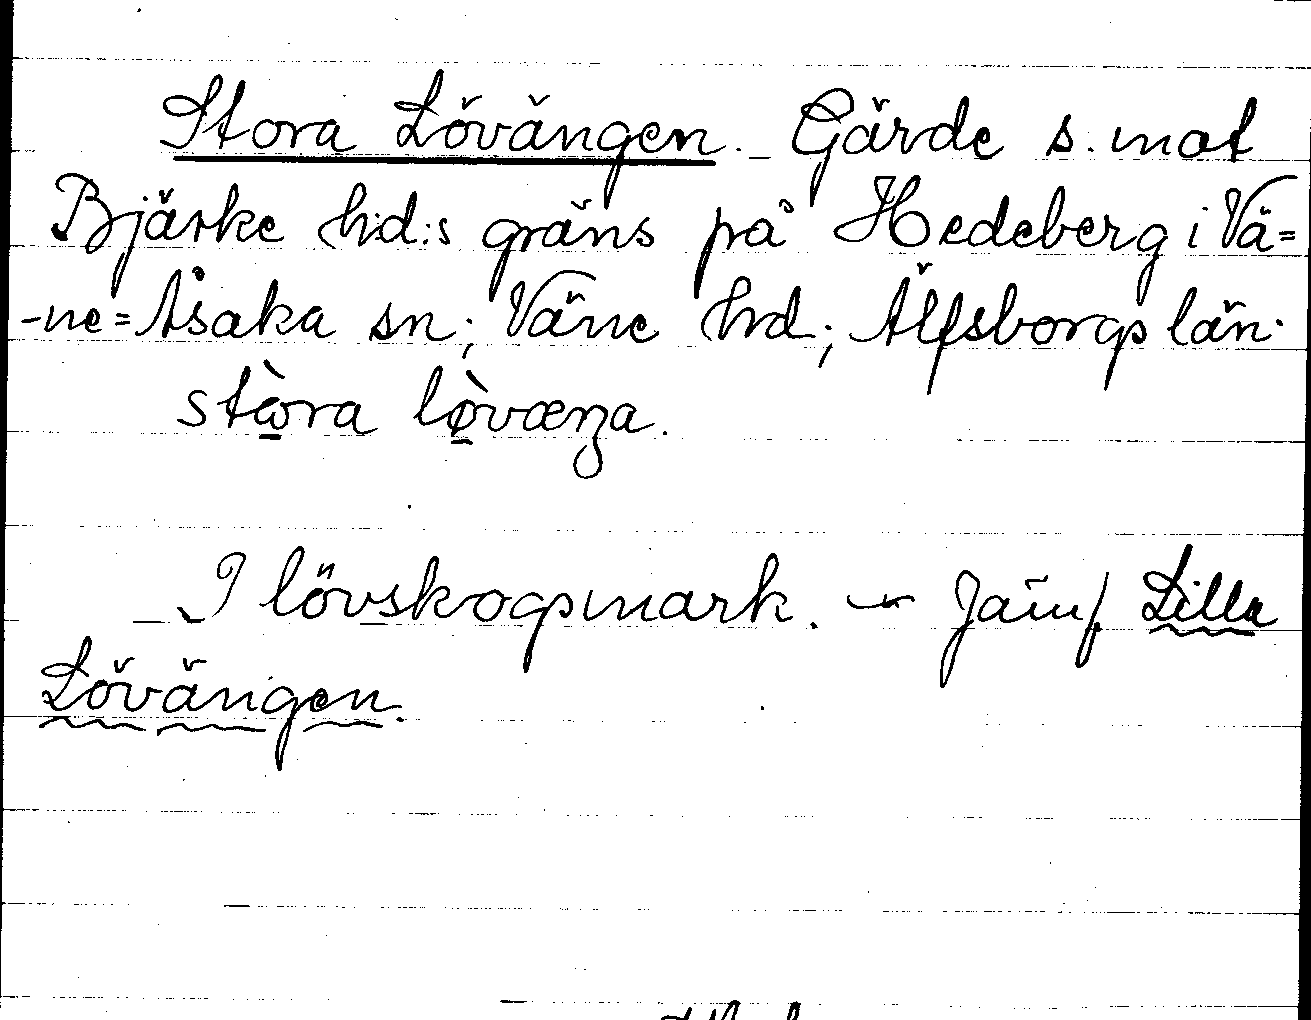 Stora Lövängen. Gärde s. mot
Bjärke hd:s gräns på Hedeberg i Vä=
-ne=Åsaka sn; Väne hd; Älfsborgs län.
stòra lø̀væŋa.
I lövskogsmark. — Jämf. Lilla
Lövängen.